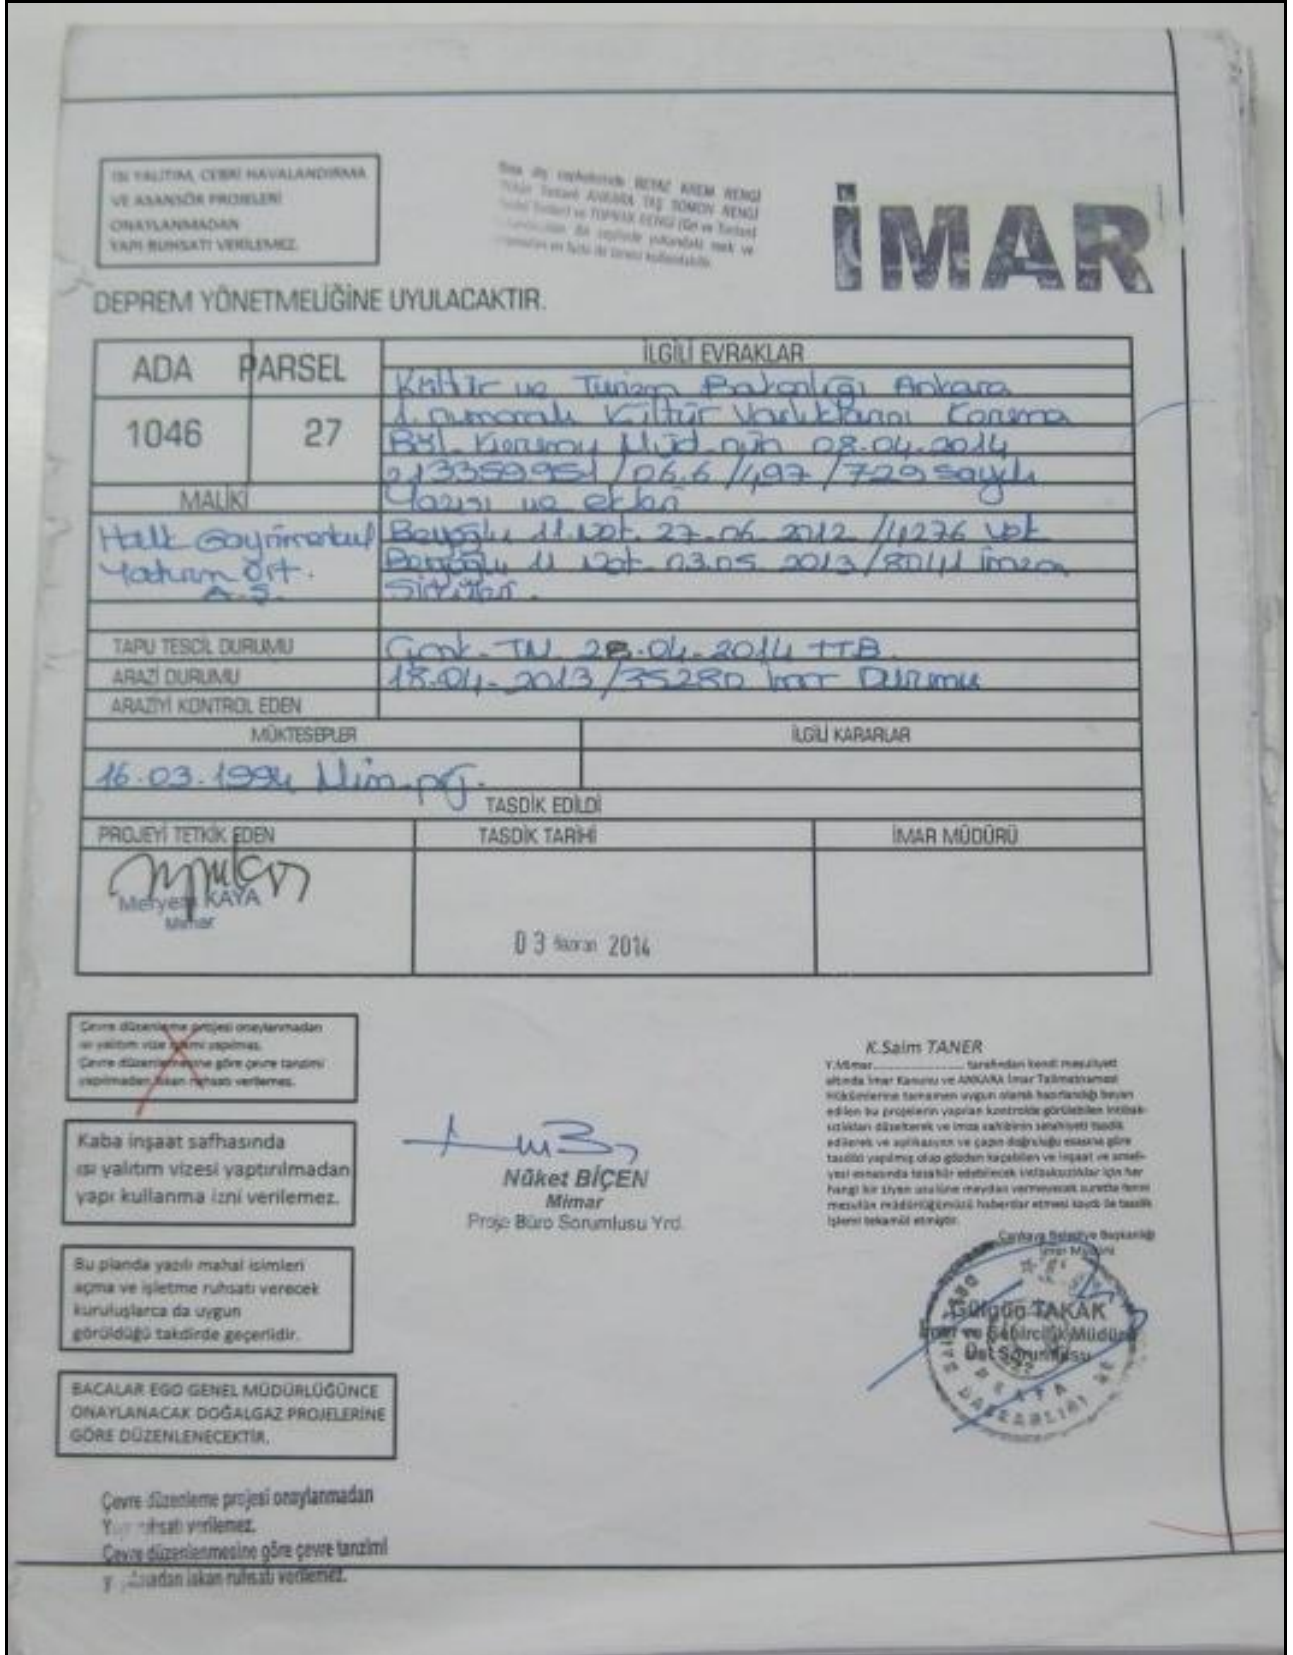 ISI YALITIM, CEBRİ HAVALANDIRMA
VE ASANSÖR PROJELERİ
ONAYLANMADAN
YAPI RUHSATI VERİLEMEZ.
dış cephelerinde BEYAZ KREM RENGİ
ANKARA TAŞ SOMON RENGİ
ve TOPRAK RENGİ
renk ve
en fazla iki tanesi kullanılabilir.
İMAR
DEPREM YÖNETMELİĞİNE UYULACAKTIR.
ADA PARSEL
İLGİLİ EVRAKLAR
1046 27
Kültür ve Turizm Bakanlığı Ankara
1. numaralı Kültür Varlıklarını Koruma
Böl. Koruma Müd-nün 08.04.2014
213359951/06.6/497/729 sayılı
Yazısı ve ekleri
MALİKİ
Halk Gayrimenkul
Yatırım Ort.
A.Ş.
Beyoğlu 11.Not. 27.06.2012/14276 Vek
Beyoğlu 11 Not. 03.05.2013/8041 imza
Sirküleri.
TAPU TESCİL DURUMU
04-2014 TTB.
ARAZİ DURUMU
18.04-2013/35280 İmar Durumu
ARAZİYİ KONTROL EDEN
MÜKTESEPLER
İLGİLİ KARARLAR
16.03.1994 Mim.prj.
TASDİK EDİLDİ
PROJEYİ TETKİK EDEN
TASDİK TARİHİ
İMAR MÜDÜRÜ
Meryem KAYA
Mimar
03 Haziran 2014
Çevre düzenleme projesi onaylanmadan
ısı yalıtım vize işlemi yapılmaz.
Çevre düzenlemesine göre çevre tanzimi
yapılmadan iskan ruhsatı verilemez.
Kaba inşaat safhasında
ısı yalıtım vizesi yaptırılmadan
yapı kullanma izni verilemez.
Bu planda yazılı mahal isimleri
açma ve işletme ruhsatı verecek
kuruluşlarca da uygun
görüldüğü takdirde geçerlidir.
BACALAR EGO GENEL MÜDÜRLÜĞÜNCE
ONAYLANACAK DOĞALGAZ PROJELERİNE
GÖRE DÜZENLENECEKTİR.
Çevre düzenleme projesi onaylanmadan
ruhsatı verilemez.
Çevre düzenlenmesine göre çevre tanzimi
iskan ruhsatı verilemez.
Nüket BİÇEN
Mimar
Proje Büro Sorumlusu Yrd.
K.Saim TANER
Y.Mimar.................... tarafından kendi mesuliyeti
altında İmar Kanunu ve ANKARA İmar Talimatnamesi
Hükümlerine tamamen uygun olarak hazırlandığı beyan
edilen bu projelerin yapılan kontrolde görülebilen intibak-
sızlıkları düzelterek ve imza sahibinin selahiyeti tasdik
edilerek ve aplikasyon ve çapın doğruluğu esasına göre
tasdiki yapılmış olup gözden kaçabilen ve inşaat ve ameli-
yesi esnasında tezahür edebilecek intibaksızlıklar için her
hangi bir ziyan usulüne meydan vermeyecek surette fenni
mesulün müdürlüğümüzü haberdar etmesi kaydı ile tasdik
işlemi tekamül etmiştir.
Çankaya Belediye Başkanlığı
İmar Müdürü
Gülgün TAKAK
İmar ve Şehircilik Müdürü
Üst Sorumlusu